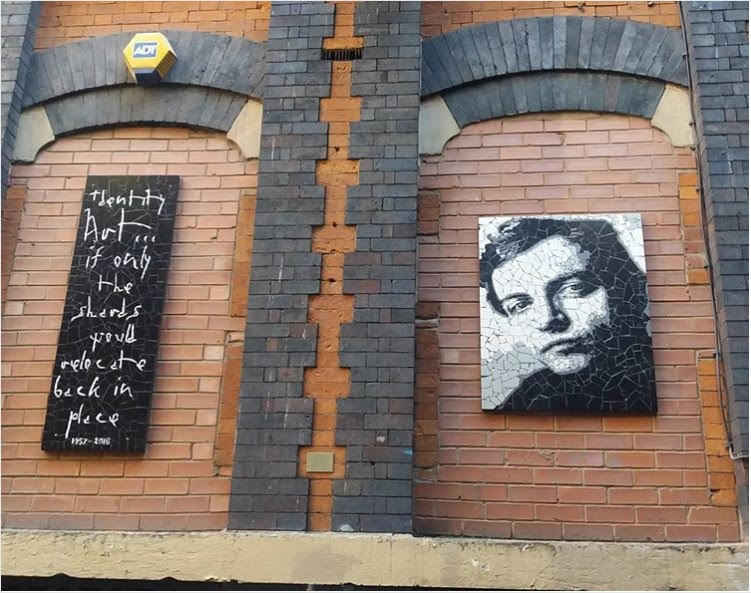 ADT
Identity
Art...
if only
the
shards
would
relocate
back in
place
1957-2018